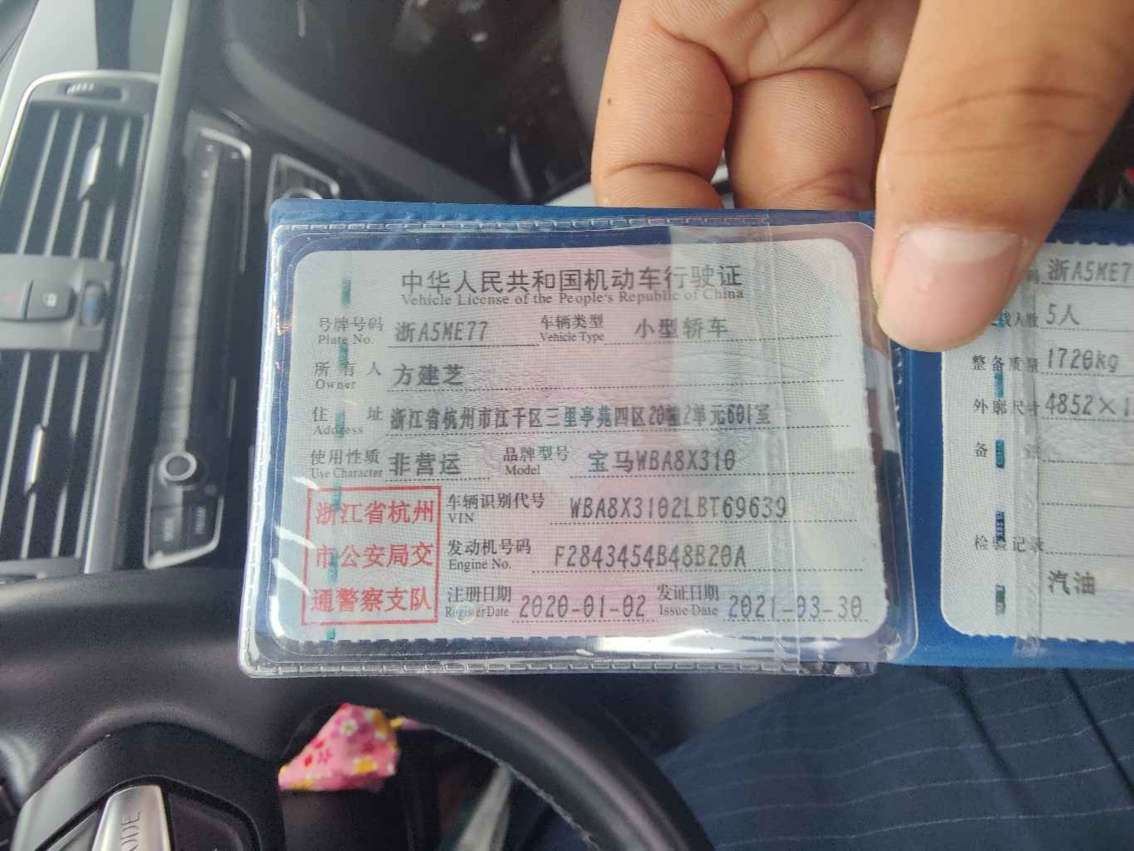 中华人民共和国机动车行驶证
Vehicle License of the People's Republic of China
号牌号码 浙A5ME77 车辆类型 小型轿车
Plate No. Vehicle Type
所有人 方建芝
Owner
住址 浙江省杭州市江干区三里亭苑四区20幢2单元601室
Address
使用性质 非营运 品牌型号 宝马WBA8X310
Use Character Model
浙江省杭州
市公安局交
通警察支队
车辆识别代号 WBA8X3102LBT69639
VIN
发动机号码 F2843454B48B20A
Engine No.
注册日期 2020-01-02 发证日期 2021-03-30
Register Date Issue Date
浙A5ME7
人数 5人
整备质量 1720kg
外廓尺寸 4852×1
备
检验记录
汽油